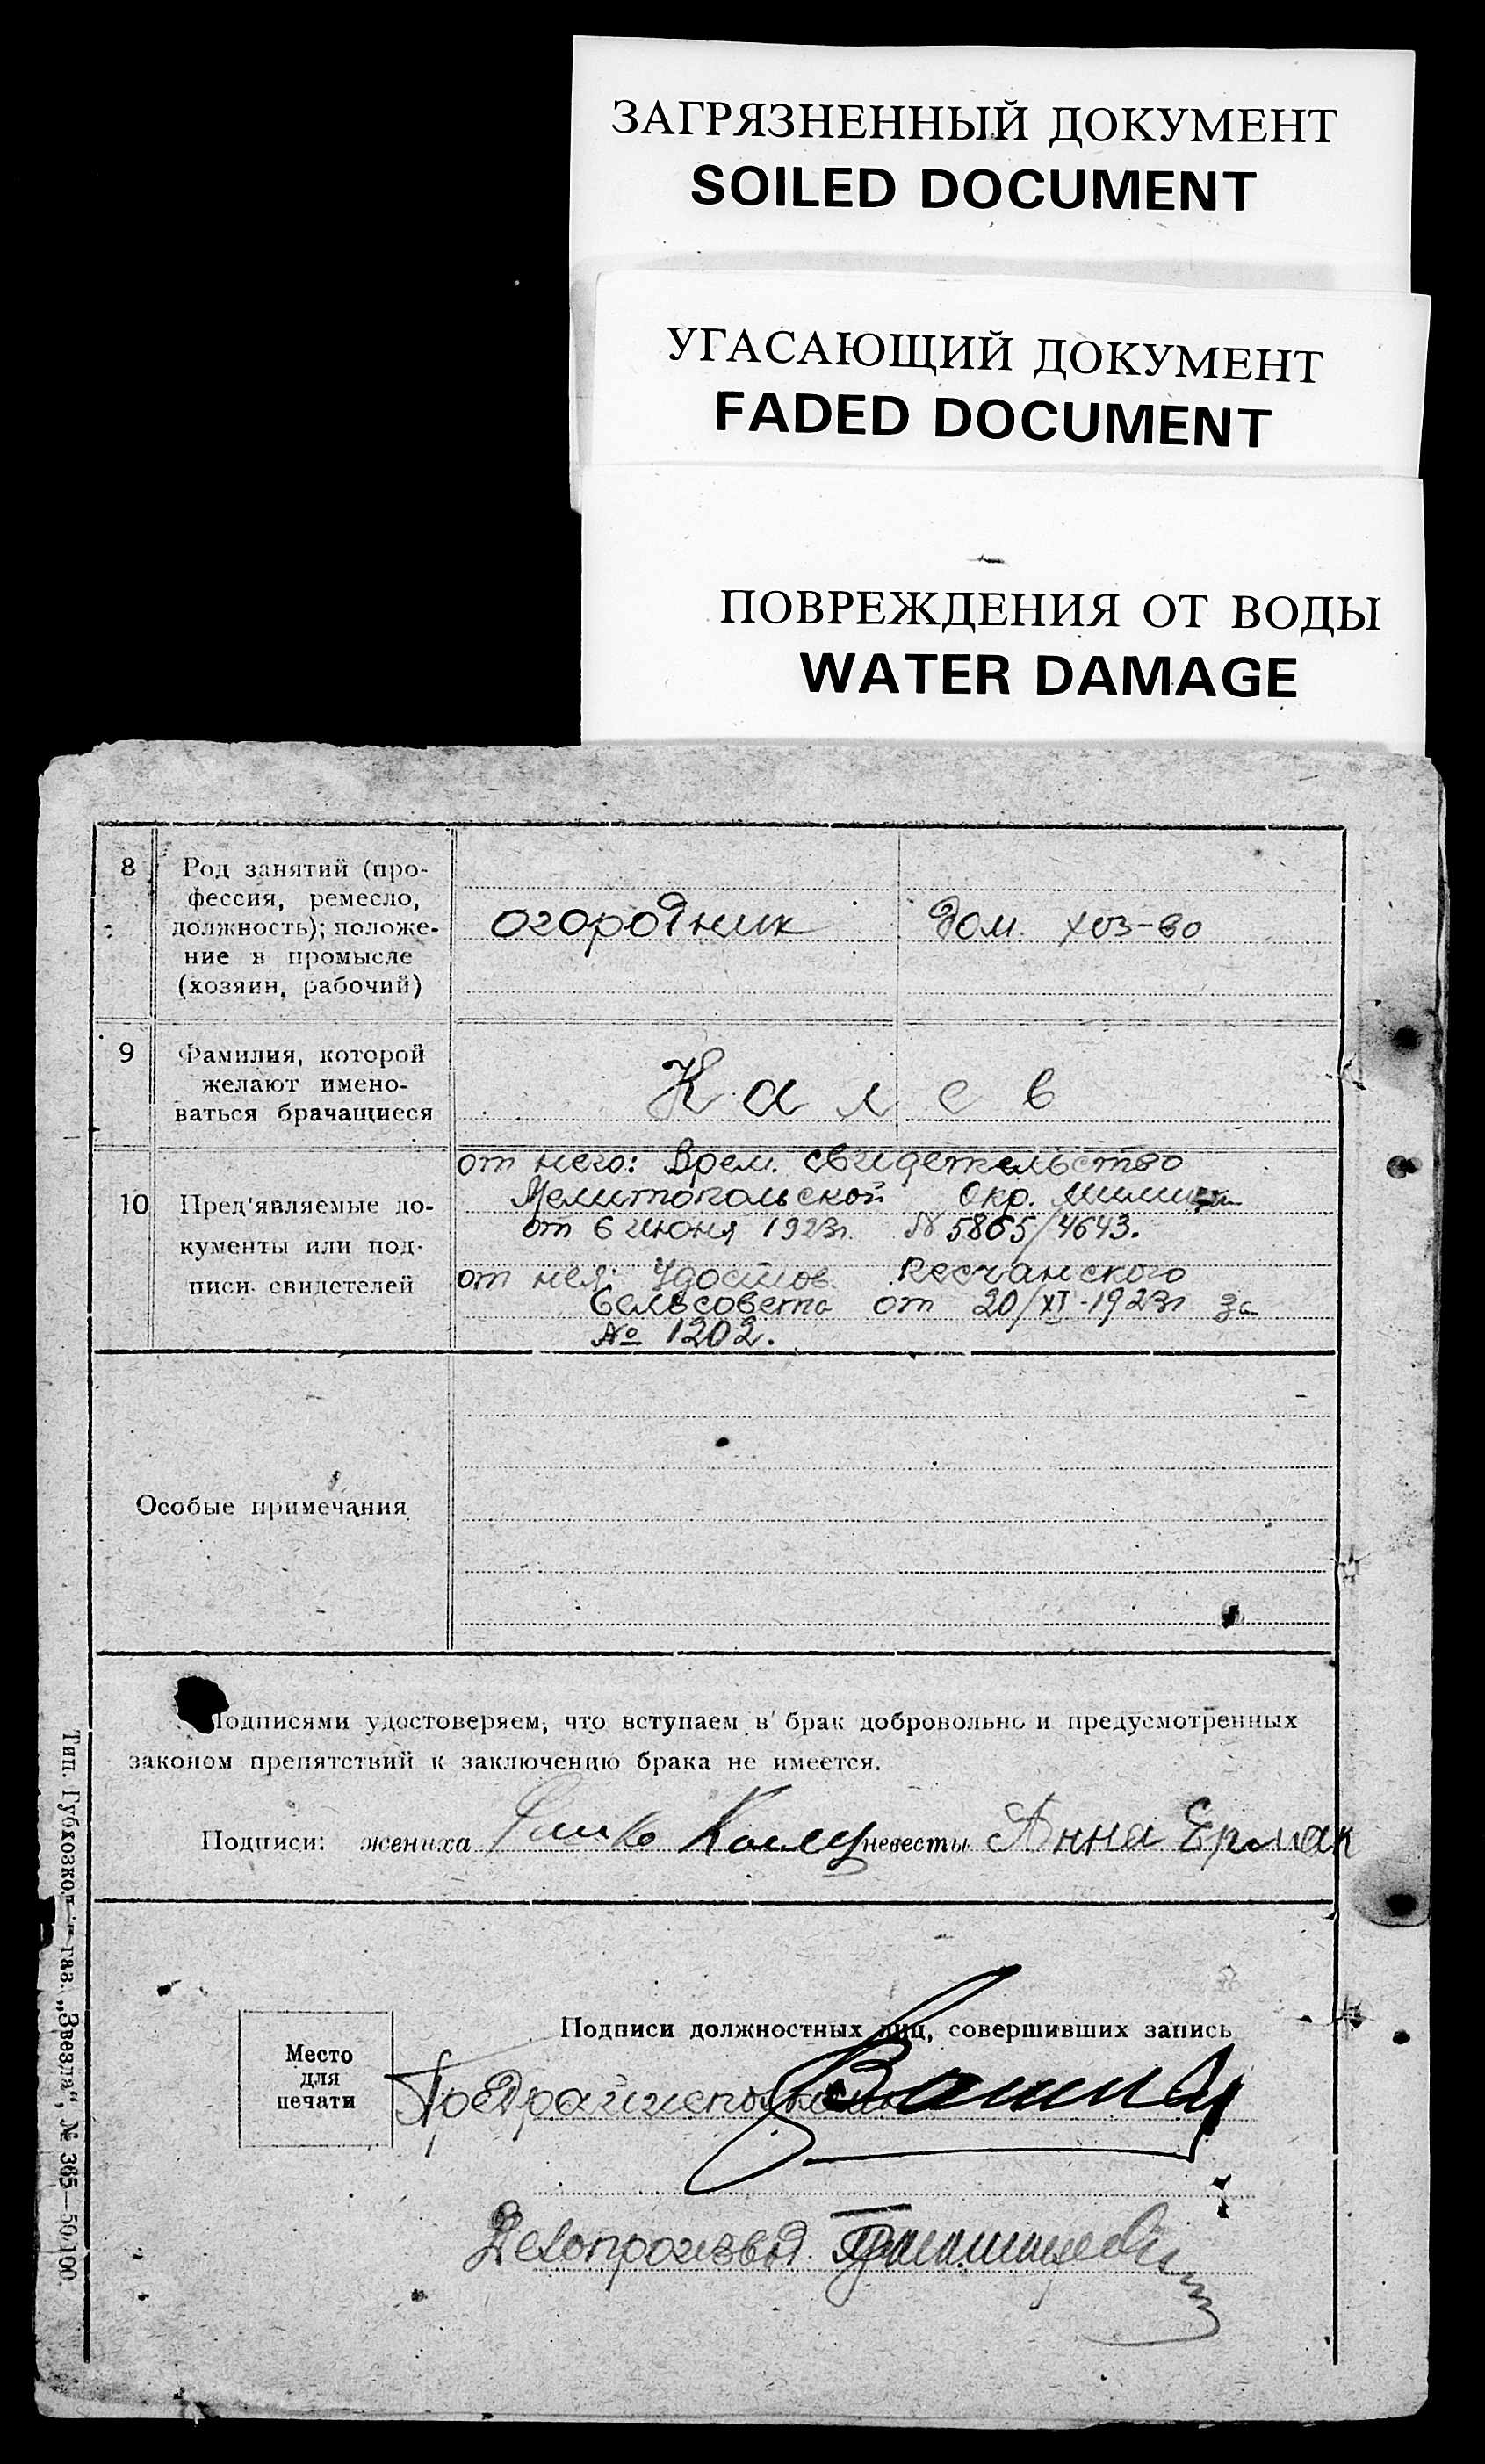 ЗАГРЯЗНЕННЫЙ ДОКУМЕНТ
SOILED DOCUMENT
УГАСАЮЩИЙ ДОКУМЕНТ
FADED DOCUMENT
ПОВРЕЖДЕНИЯ ОТ ВОДЫ
WATER DAMAGE
8
Род занятий (про-
фессия, ремесло,
должность); положе-
ние в промысле
(хозяин, рабочий)
огородник
дом. хоз-во
9
Фамилия, которой
желают имено-
ваться брачащиеся
Калев
10
Пред'являемые до-
кументы или под-
писи свидетелей
от него: Врем. свидетельство
Мелитопольской Окр. милиции
от 6 июня 1923г. № 5865/4643.
от нея: Удостов.
Сельсовета от 20/XI-1923г за
№ 1202.
Особые примечания
Подписями удостоверяем, что вступаем в брак добровольно и предусмотренных
законом препятствий к заключению брака не имеется.
Подписи: жениха невесты Анна Ермак
Место
для
печати
Подписи должностных лиц, совершивших запись
Предрайисполкома
Делопроизвод.
Тип. Губхозкол. газ. „Звезда“, № 365—50.100.